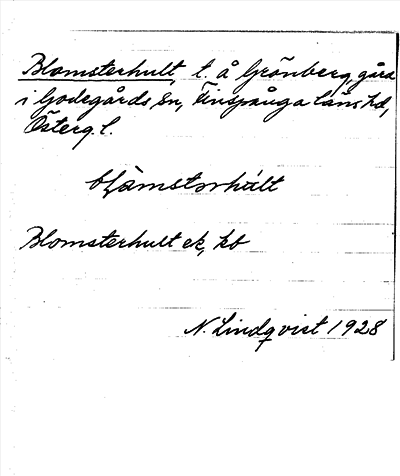 Blomsterhult, t. å Grönberg, gård
i Godegårds sn, Finspånga läns hd,
Österg. l.
Blomsterhult ek, kb
N. Lindqvist 1928